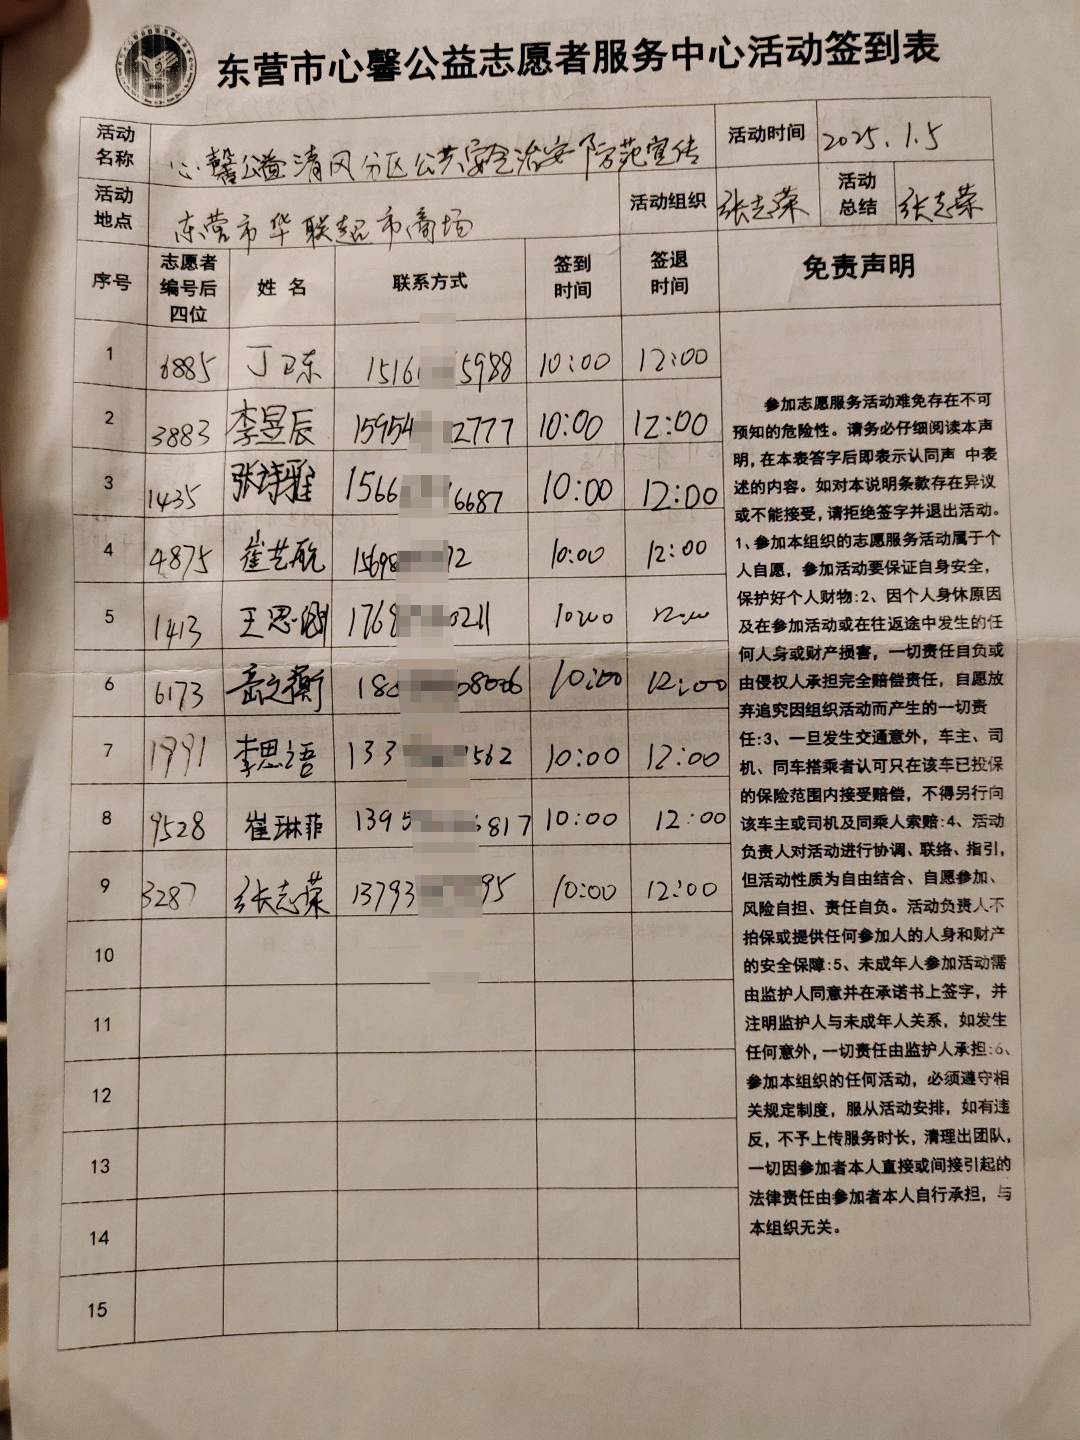 东营市心馨公益志愿者服务中心活动签到表
活动名称 心馨公益清风分区公共安全治安防范宣传 活动时间 2025.1.5
活动地点 东营市华联超市商场 活动组织 张志荣 活动总结 张志荣
序号 志愿者编号后四位 姓名 联系方式 签到时间 签退时间 免责声明
1 6885 丁卫东 1516 5988 10:00 12:00
2 3883 李昱辰 15954 2777 10:00 12:00
3 1435 张诗雅 1566 6687 10:00 12:00
4 4875 崔艺航 15698 72 10:00 12:00
5 1413 王思 1768 0211 10:00 12:00
6 6173 衡 18 10:00 12:00
7 1991 李思语 133 1562 10:00 12:00
8 9528 崔琳菲 1395 6817 10:00 12:00
9 3287 张志荣 13793 95 10:00 12:00
10
11
12
13
14
15
参加志愿服务活动难免存在不可
预知的危险性。请务必仔细阅读本声
明,在本表答字后即表示认同声 中表
述的内容。如对本说明条款存在异议
或不能接受,请拒绝签字并退出活动。
1、参加本组织的志愿服务活动属于个
人自愿，参加活动要保证自身安全,
保护好个人财物:2、因个人身休原因
及在参加活动或在往返途中发生的任
何人身或财产损害，一切责任自负或
由侵权人承担完全赔偿责任，自愿放
弃追究因组织活动而产生的一切责
任:3、一旦发生交通意外，车主、司
机、同车搭乘者认可只在该车已投保
的保险范围内接受赔偿，不得另行向
该车主或司机及同乘人索赔:4、活动
负责人对活动进行协调、联络、指引,
但活动性质为自由结合、自愿参加、
风险自担、责任自负。活动负责人不
拍保或提供任何参加人的人身和财产
的安全保障:5、未成年人参加活动需
由监护人同意并在承诺书上签字，并
注明监护人与未成年人关系，如发生
任何意外,一切责任由监护人承担:6、
参加本组织的任何活动，必须遵守相
关规定制度，服从活动安排，如有违
反，不予上传服务时长，清理出团队,
一切因参加者本人直接或间接引起的
法律责任由参加者本人自行承担，与
本组织无关。